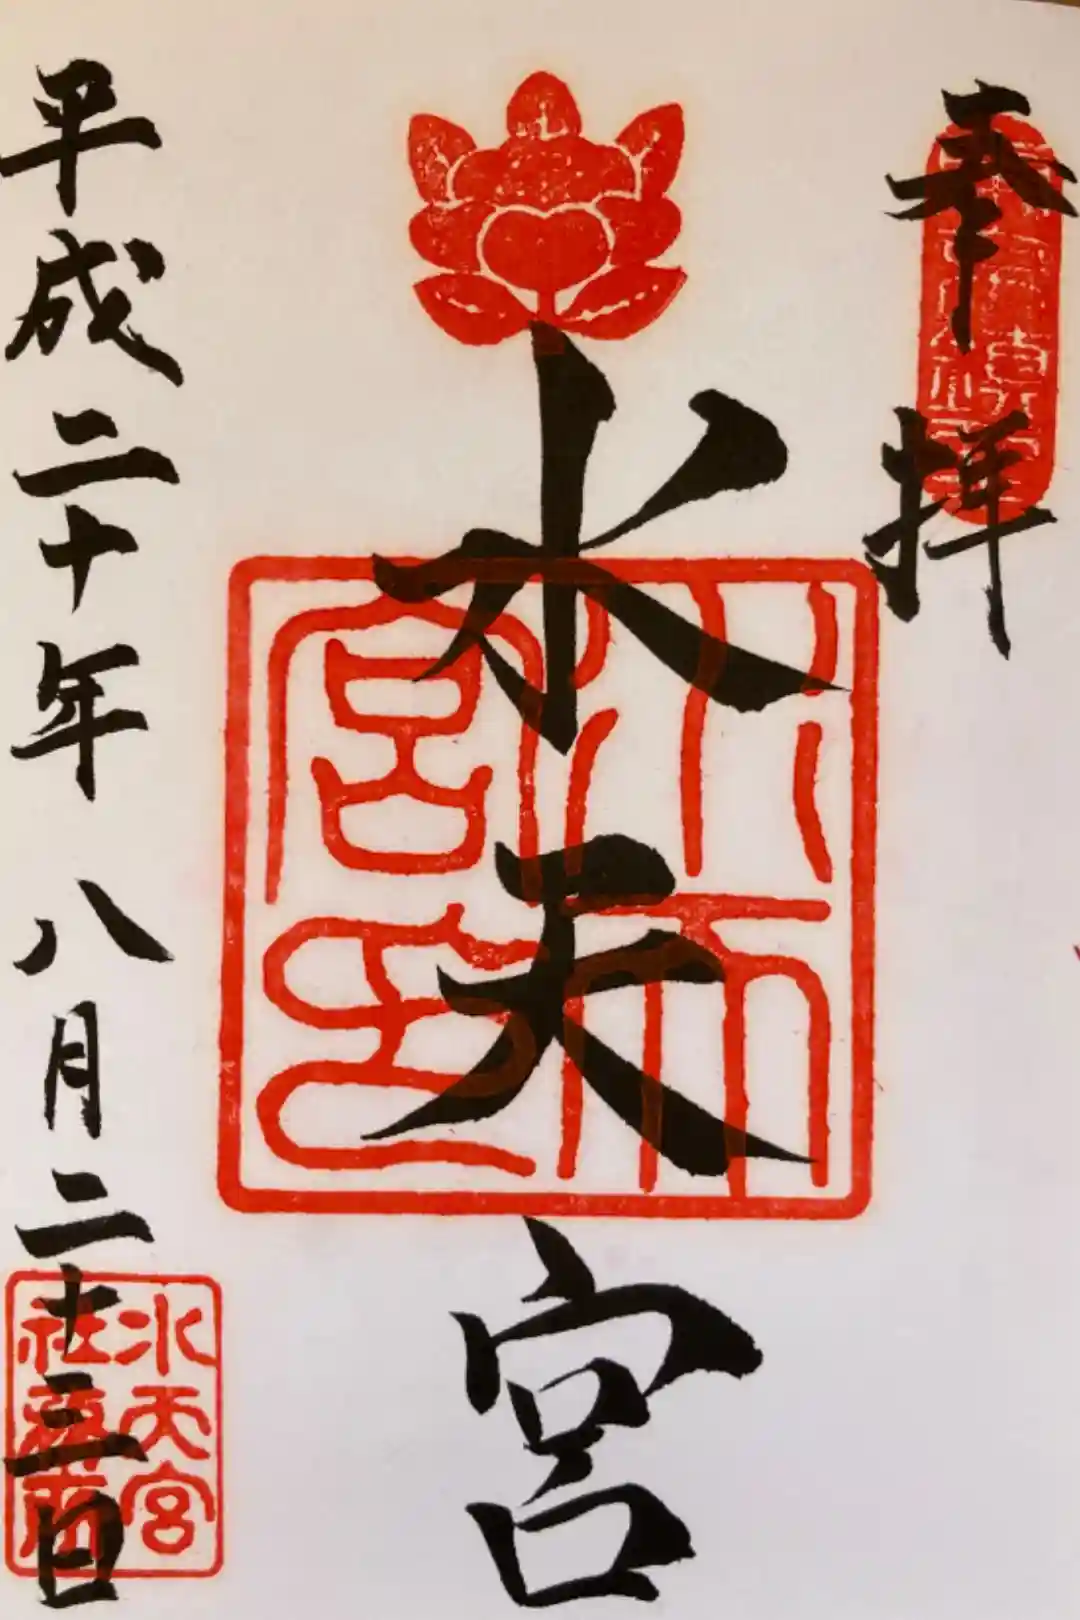 奉拝
水天宮
平成二十年八月二十三日
水天宮
社務所
水天宮印